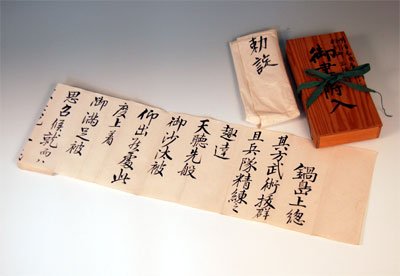 鍋島上總
其方武術拔群
且兵隊精練之
趣達
天聴先般
御沙汰被
仰出候處此
度上着
御満足被
思召候就而ハ
勅諚
御書附入